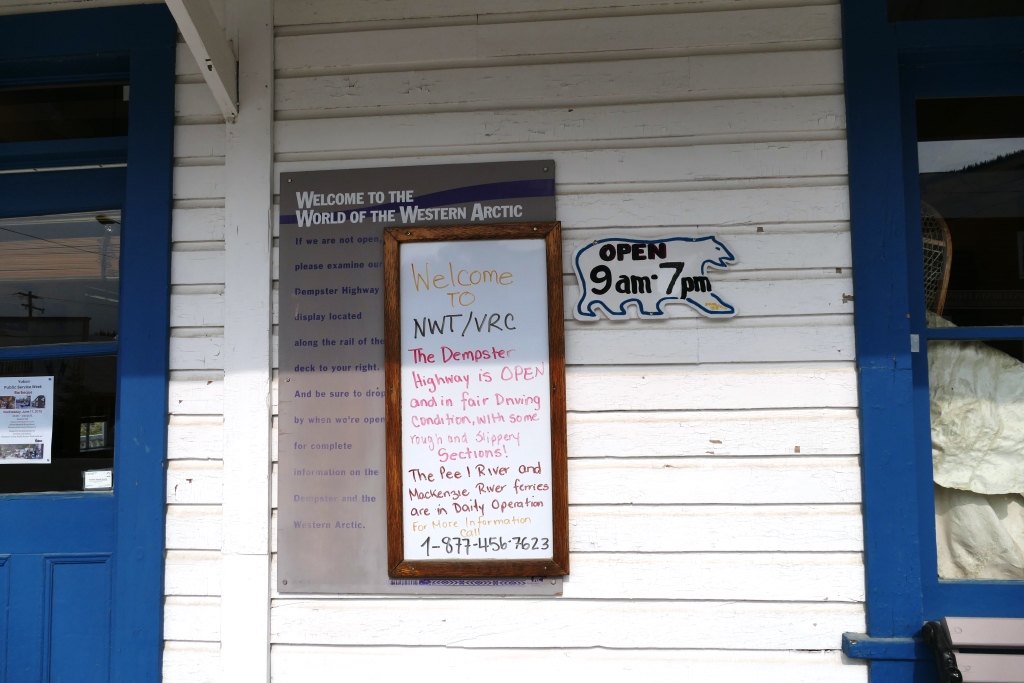 WELCOME TO THE
WORLD OF THE WESTERN ARCTIC
If we are not open,
please examine our
Dempster Highway
display located
along the rail of the
deck to your right.
And be sure to drop
by when we're open
for complete
information on the
Dempster and the
Western Arctic.
Welcome
TO
NWT/VRC
The Dempster
Highway is OPEN
and in fair Driving
Condition, with some
rough and Slippery
Sections!
The Peel River and
Mackenzie River ferries
are in Daily Operation
For More Information
Call
1-877-456-7623
OPEN
9am-7pm
Yukon
Public Service Week
Barbecue